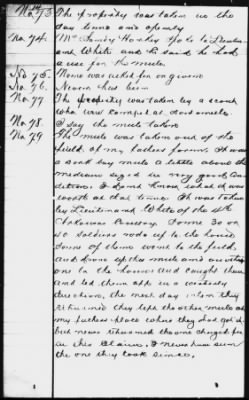 No 73. The property was taken in the
day time and openly
No. 74. Mr James Hockey spoke to Lieuten
ant White and he said he had
a use for the mule.
No 75. None was asked for or given
No. 76. Never has been
No. 77 The property was taken by a scout
who was camped at
No. 78. I say the mule taken
No. 79 The mule was taken out of the
field of my fathers farm. It was
a dark bay mule a little above the
medium sized in very good con
dition. I dont know what it was
worth at that time. It was taken
by Lieutenant White of the 4th
Arkansas Cavalry. Some 30 or
40 soldiers rode up to the house
some of them went to the field
and drove up this mule and
ons to the house and caught them
and led them off in a westerly
direction. the next day when they
returned they left the other mule at
my fathers place where they had got it
but never returned the one charged for
in this claim. I never have seen
the one they took since.